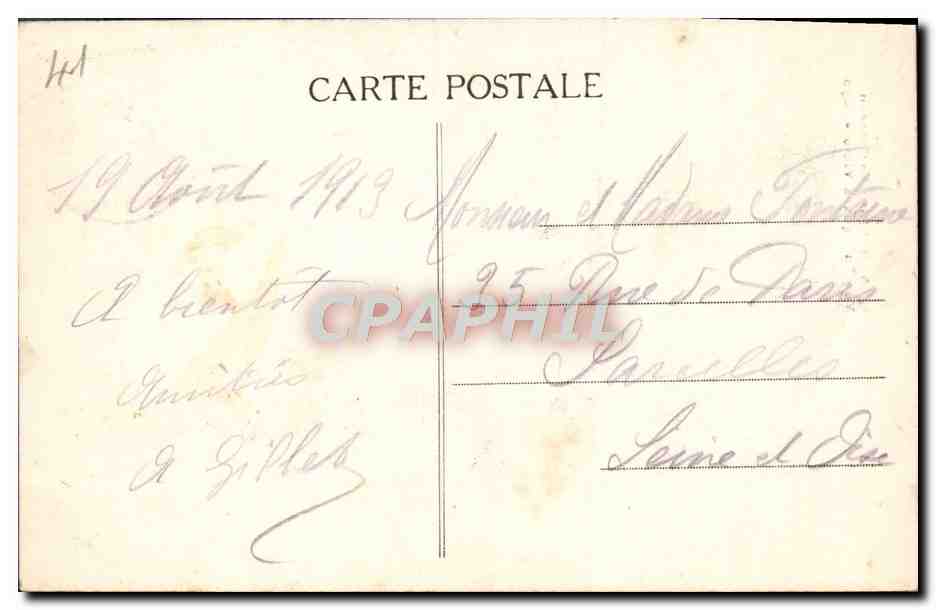 41
CARTE POSTALE
19 Août 1913
A bientot
Amitiés
A Gillet
Monsieur et Madame Fontaine
95 Rue de Paris
Sarcelles
Seine et Oise
CPAPHIL